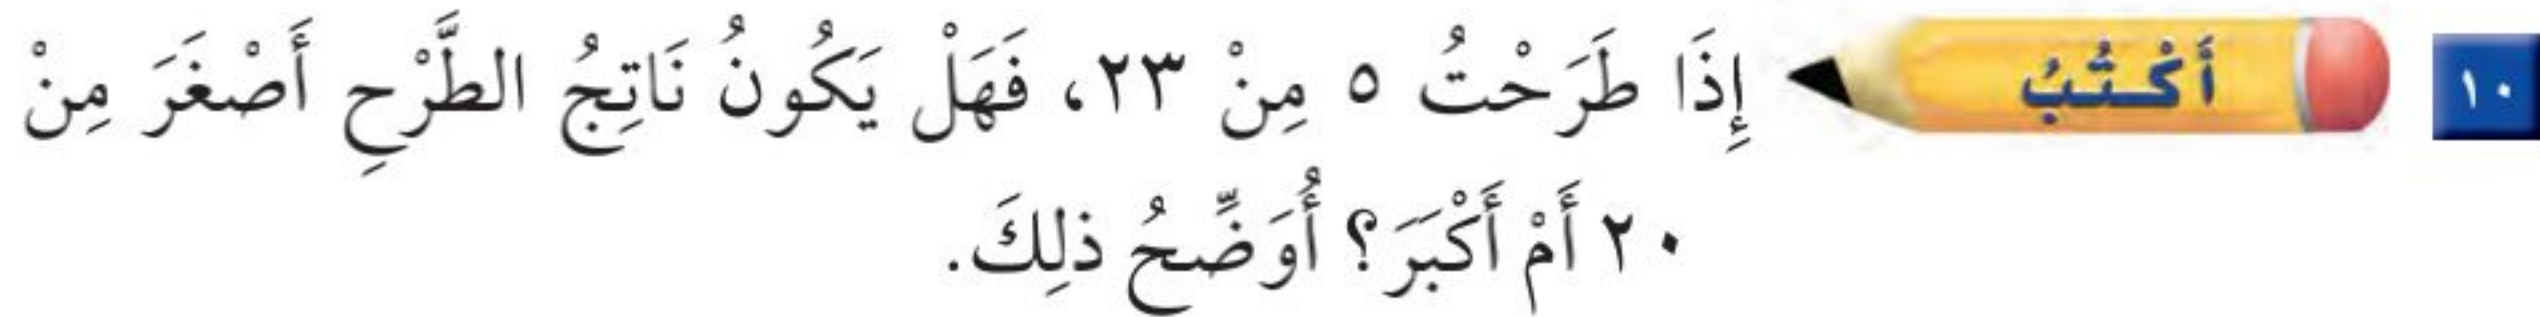 ١٠ أَكْتُبُ إِذَا طَرَحْتُ ٥ مِنْ ٢٣، فَهَلْ يَكُونُ نَاتِجُ الطَّرْحِ أَصْغَرَ مِنْ
٢٠ أَمْ أَكْبَرَ؟ أُوَضِّحُ ذلِكَ.